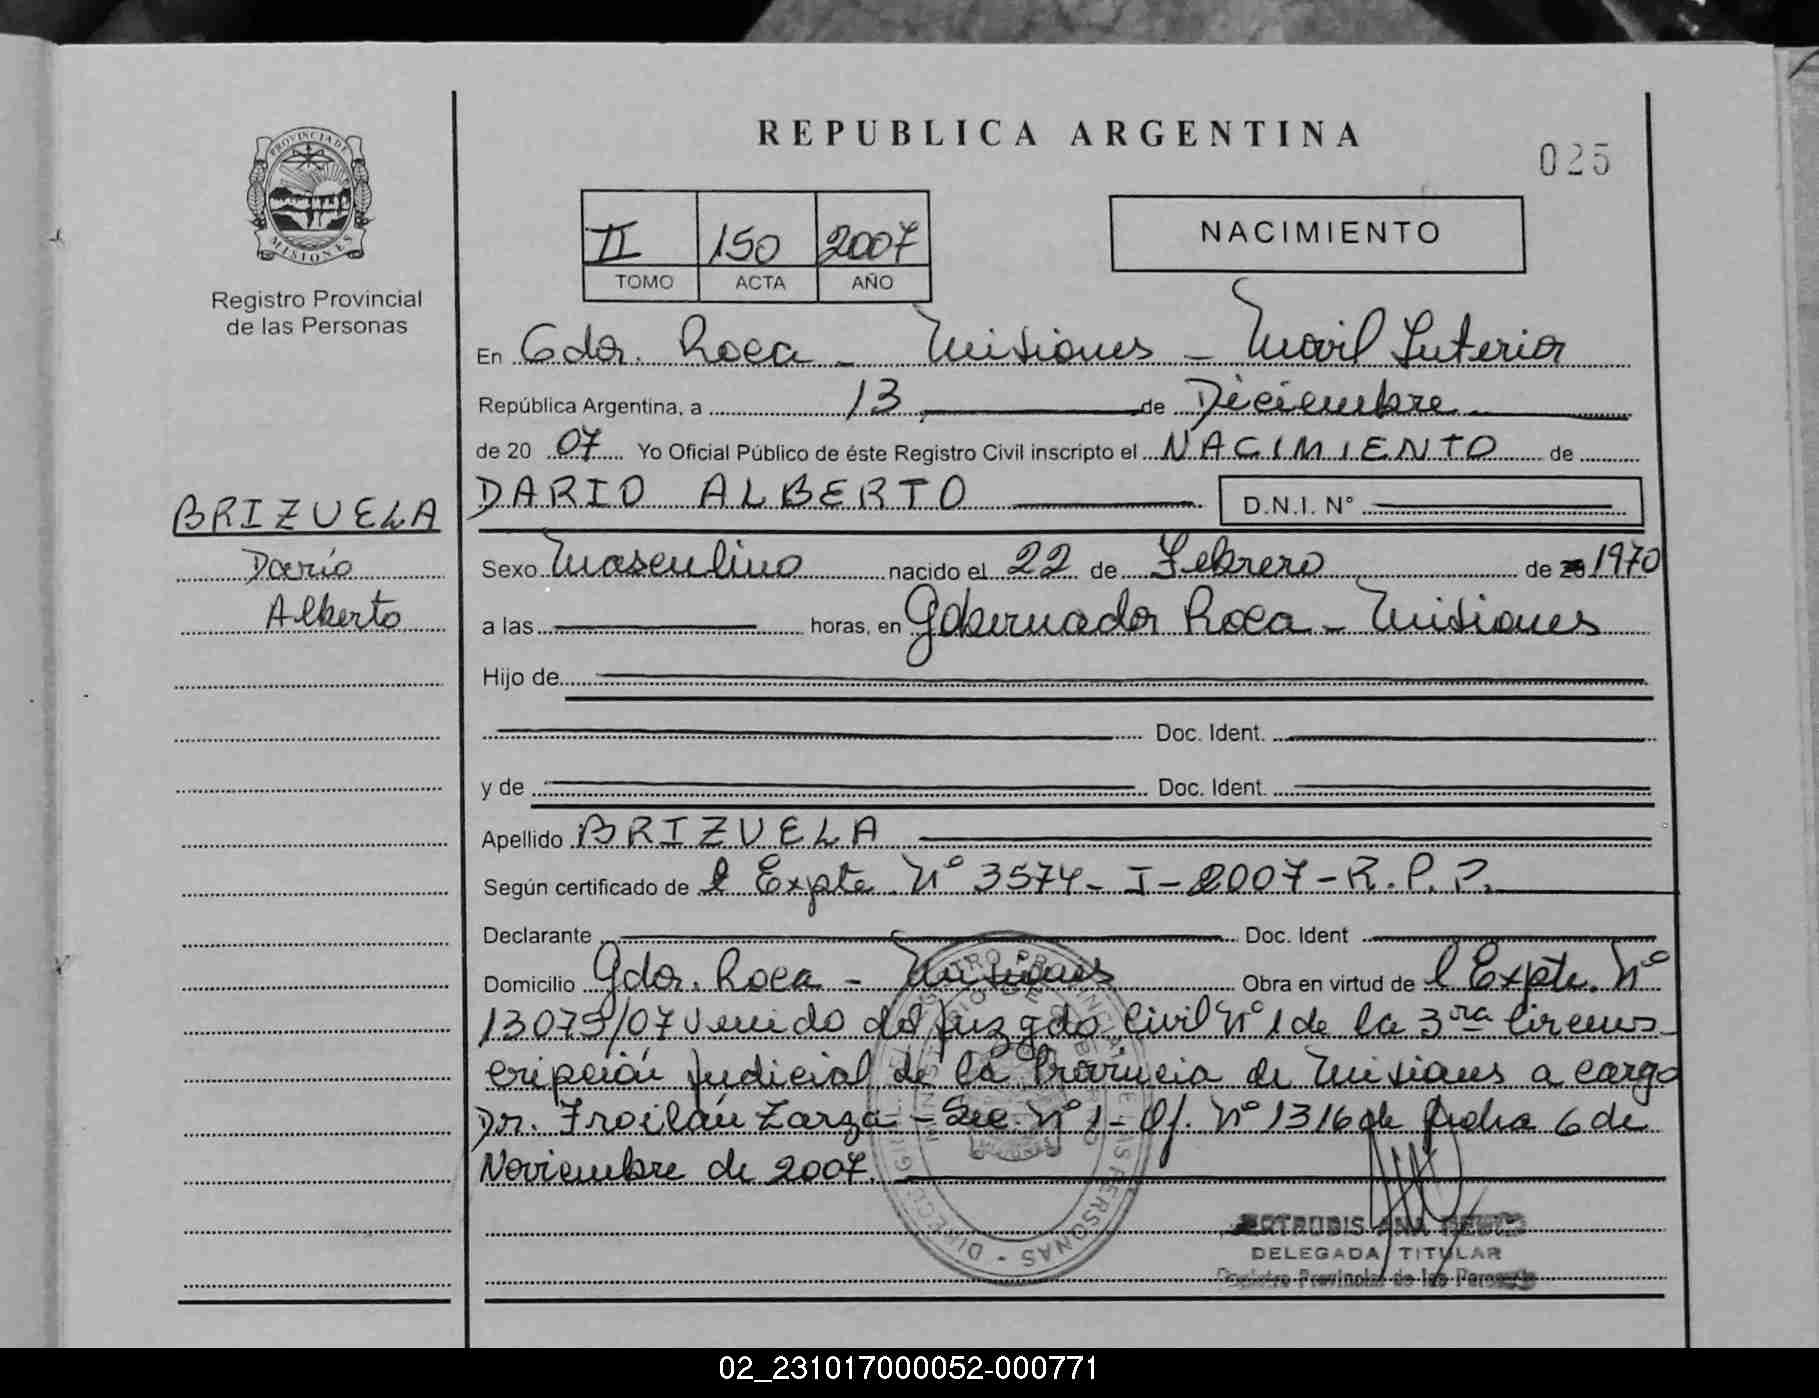 REPUBLICA ARGENTINA
025
PROVINCIA DE
MISIONES
Registro Provincial
de las Personas
II 150 2007
TOMO ACTA AÑO
NACIMIENTO
En Gdor. Roca - Misiones - Movil Interior
República Argentina, a 13 de Diciembre
de 20 07 Yo Oficial Público de éste Registro Civil inscripto el NACIMIENTO de
BRIZUELA
Darío
Alberto
DARIO ALBERTO D.N.I. N°
Sexo Masculino nacido el 22 de Febrero de 1970
a las horas, en Gobernador Roca - Misiones
Hijo de
Doc. Ident.
y de Doc. Ident.
Apellido BRIZUELA
Según certificado de l Expte N° 3574 - I - 2007 - R.P.P.
Declarante Doc. Ident
Domicilio Gdor. Roca - Misiones Obra en virtud de l Expte. N°
13079/07 venido del Juzgdo Civil N° 1 de la 3ra Circuns-
cripción Judicial de la Provincia de Misiones a cargo
Dr. Froilán Zarza - Sec. N° 1 - Of. N° 1316 de fecha 6 de
Noviembre de 2007.
ANA
DELEGADA TITULAR
Registro Provincial de las Personas
02_231017000052-000771